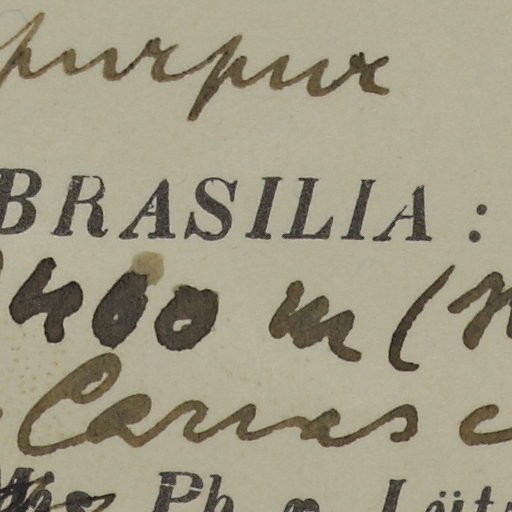 purpur
BRASILIA :
400 m (
Carrasc
Ph